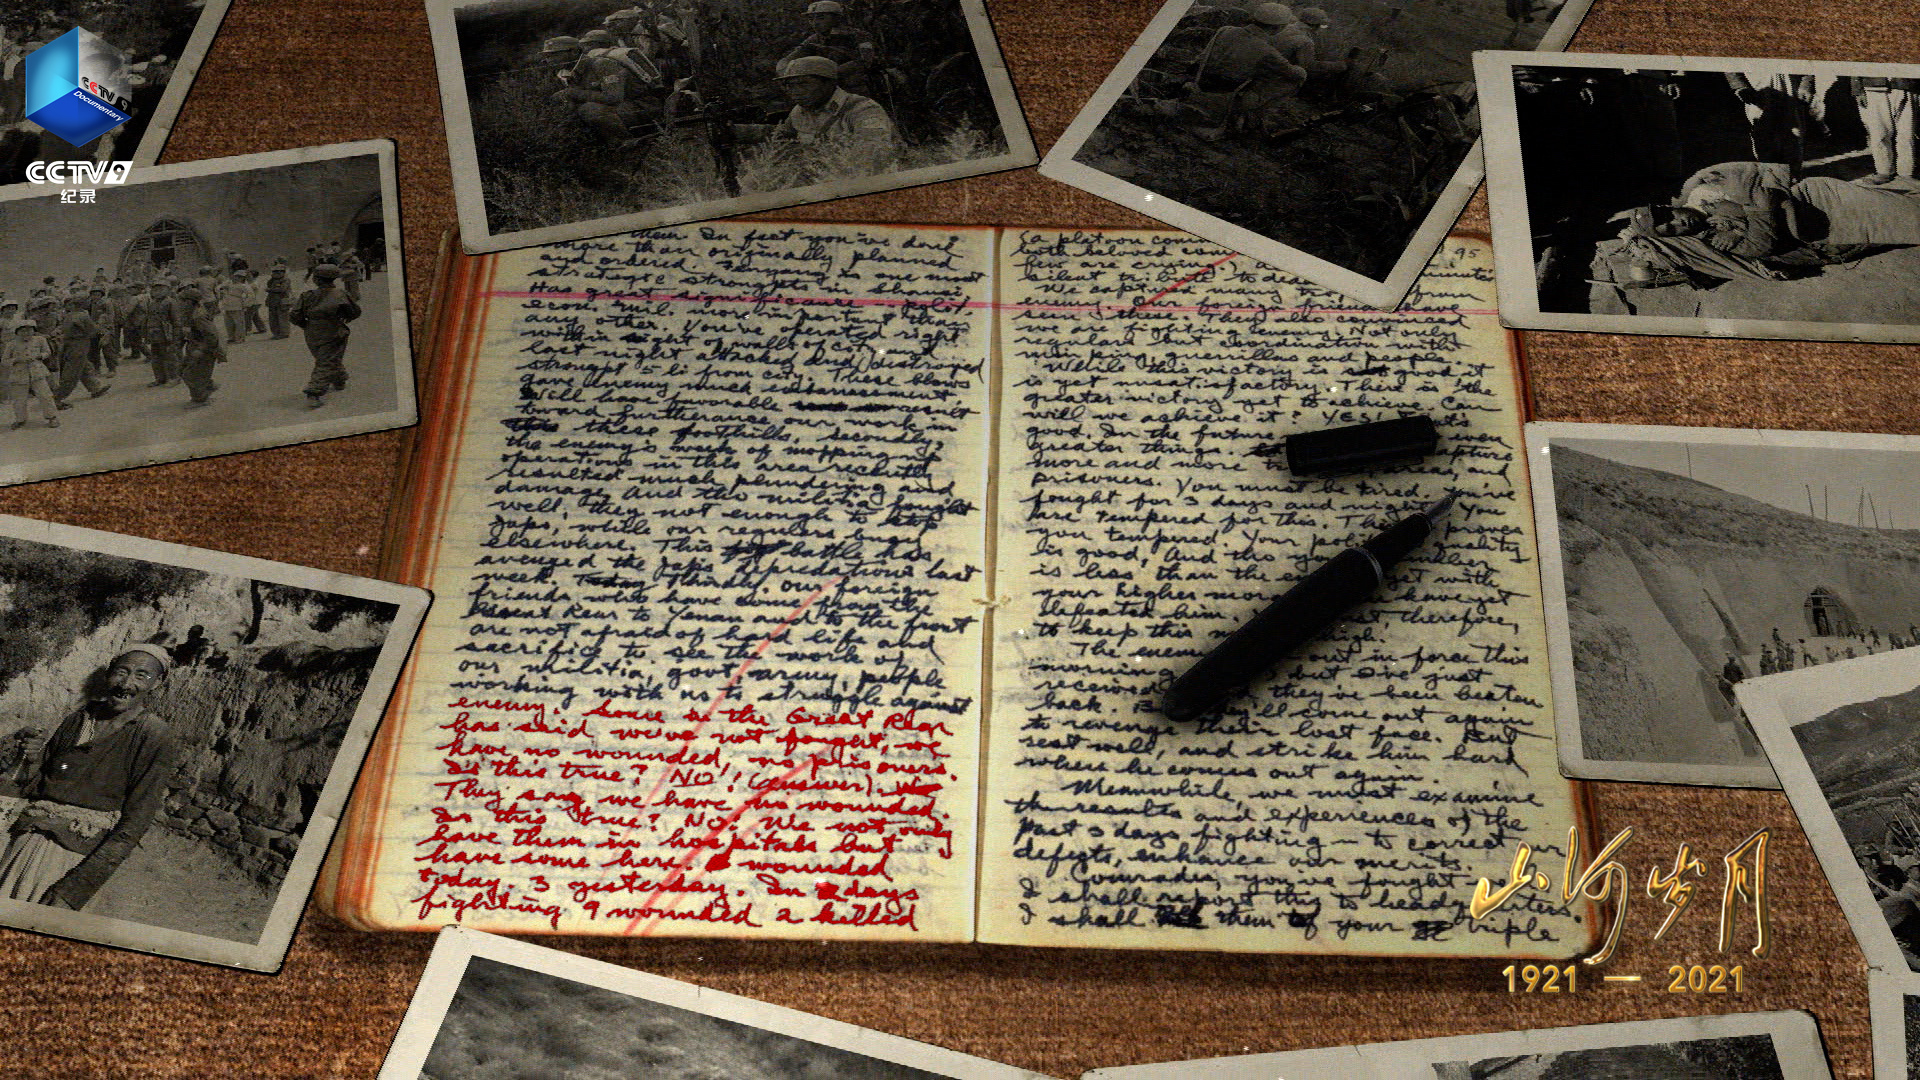 CCTV 9
Documentary
CCTV 9
纪录
them In fact you've done
more than originally planned
and ordered. Fenyang is one most
strategic strongpts in Shansi,
Has great significance polit,
econ. mil. more important than
any other. You've operated right
within sight of walls of city and
last night attacked and destroyed
strongpt 5 li from city. These blows
gave enemy much embarrassment
Will have favorable result
toward furtherance our work in
these foothills. Secondly,
the enemy's week of mopping up
operations in this area
resulted much plundering and
damage. And tho militia fought
well, they not enough to stop
Japs, while our regulars busy
elsewhere. This battle has
avenged the Japs depredations last
week. Thirdly, our foreign
friends who have come from the
Rear to Yenan and to the front
are not afraid of hard life and
sacrifice to see the work of
our militia, govt army, people
working with us to struggle against
enemy. Some in the Great Rear
has said we've not fought, we
have no wounded, no prisoners.
Is this true? NO! (answer).
They say we have no wounded.
Is this true? No. We not only
have them in hospitals but
have some here. wounded
today. 3 yesterday. In 2 days
fighting 9 wounded 2 killed
95
(a platoon
both beloved
silent tribute to
We captured many from
enemy. Our foreign friends have
seen these They also convinced
we are fighting enemy. Not only
regulars but coordination with
min ping, guerrillas and people.
While this victory is good it
is yet unsatisfactory. There is the
greater victory yet to achieve. Can
will we achieve it? YES!
good. In the future even
greater things. capture
more and more and
prisoners. You must be tired. You've
fought for 3 days and nights You
are tempered for this. This proves
you tempered. Your quality
is good, And tho your number
is less than the yet with
your higher have yet
defeated him. therefore,
to keep this high.
The enemy out in force this
morning but I've just
received they've been beaten
back. come out again
to revenge their lost face. But
rest well, and strike him hard
when he comes out again.
Meanwhile, we must examine
the results and experiences of the
past 3 days fighting to correct our
defects, enhance our merits.
Comrades, you've fought
I shall report this to headquarters.
I shall them of your triple
山河岁月
1921 — 2021